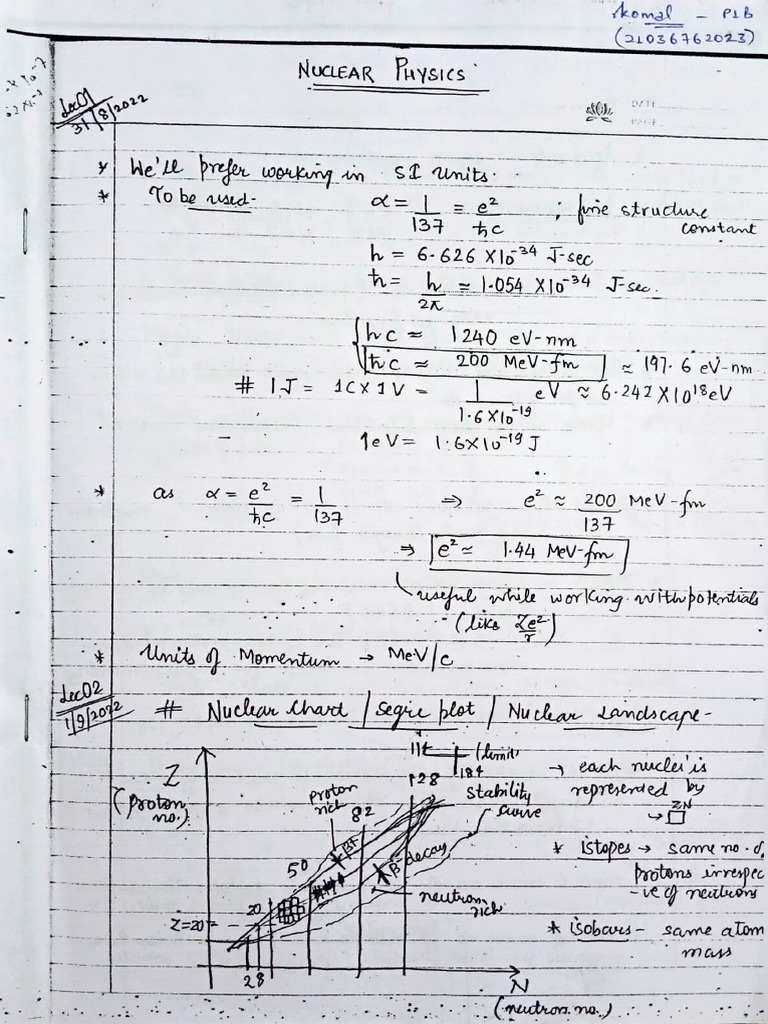 Komal - P1B
(21036762023)
NUCLEAR PHYSICS
Lec01
31/8/2022
DATE
PAGE
* We'll prefer working in SI Units.
* To be used- α = 1/137 = e²/ħc ; fine structure constant
h = 6.626 X10⁻³⁴ J-sec
ħ = h/2π ≈ 1.054 X10⁻³⁴ J-sec.
hc ≈ 1240 eV-nm
ħc ≈ 200 MeV-fm ≈ 197.6 eV-nm
# 1J = 1C X 1V = 1/1.6X10⁻¹⁹ eV ≈ 6.242 X10¹⁸ eV
1eV = 1.6X10⁻¹⁹ J
* as α = e²/ħc = 1/137 ⇒ e² ≈ 200/137 MeV-fm
⇒ e² ≈ 1.44 MeV-fm
useful while working with potentials
(like Ze²/r)
* Units of Momentum → MeV/c
Lec02
1/9/2022
# Nuclear Chart / Segre plot / Nuclear Landscape-
114 (limit)
184
128
82
50
20
Z=20
28
Z
(proton no.)
proton rich
β+
β- decay
neutron rich
stability curve
N
(neutron no.)
→ each nuclei is
represented by
→ □ ZN
* istopes → same no. of
protons irrespec
-ive of neutrons
* isobars - same atom
mass